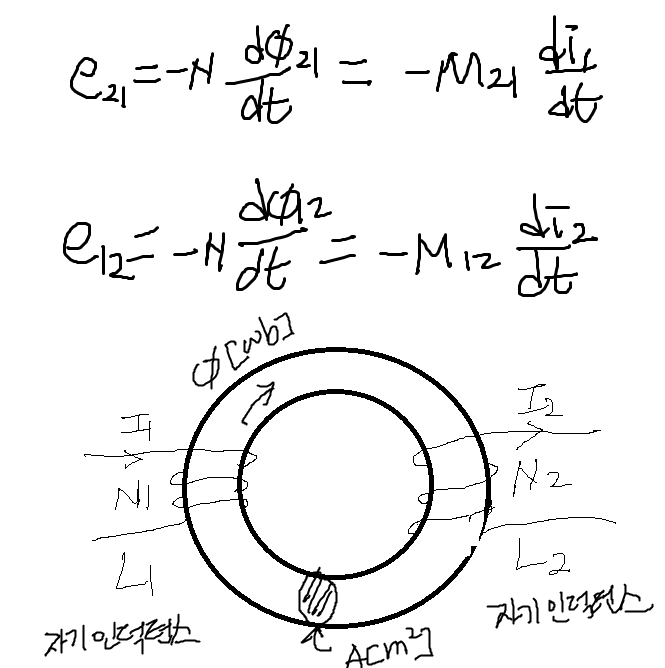 e₂₁ = -N dϕ₂₁/dt = -M₂₁ di₁/dt
e₁₂ = -N dϕ₁₂/dt = -M₁₂ di₂/dt
ϕ[wb]
I₁
I₂
N₁
N₂
L₁
L₂
자기인덕턴스
자기인덕턴스
A[m²]